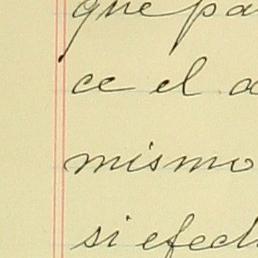 que pa
ce el a
mismo
si efect